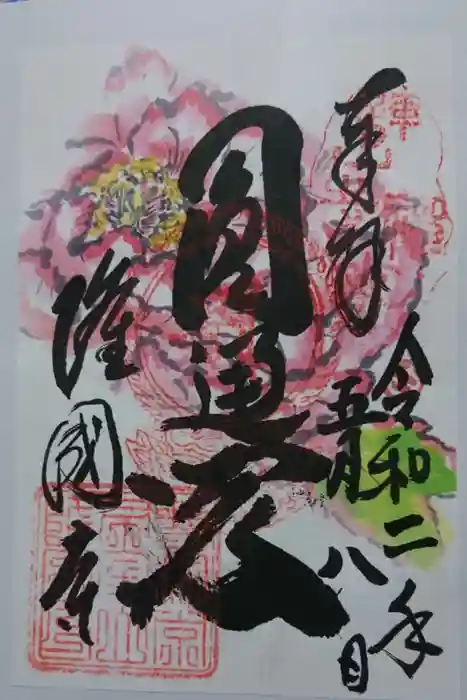 奉拝
令和二年
五月八日
圓通殿
隆國寺